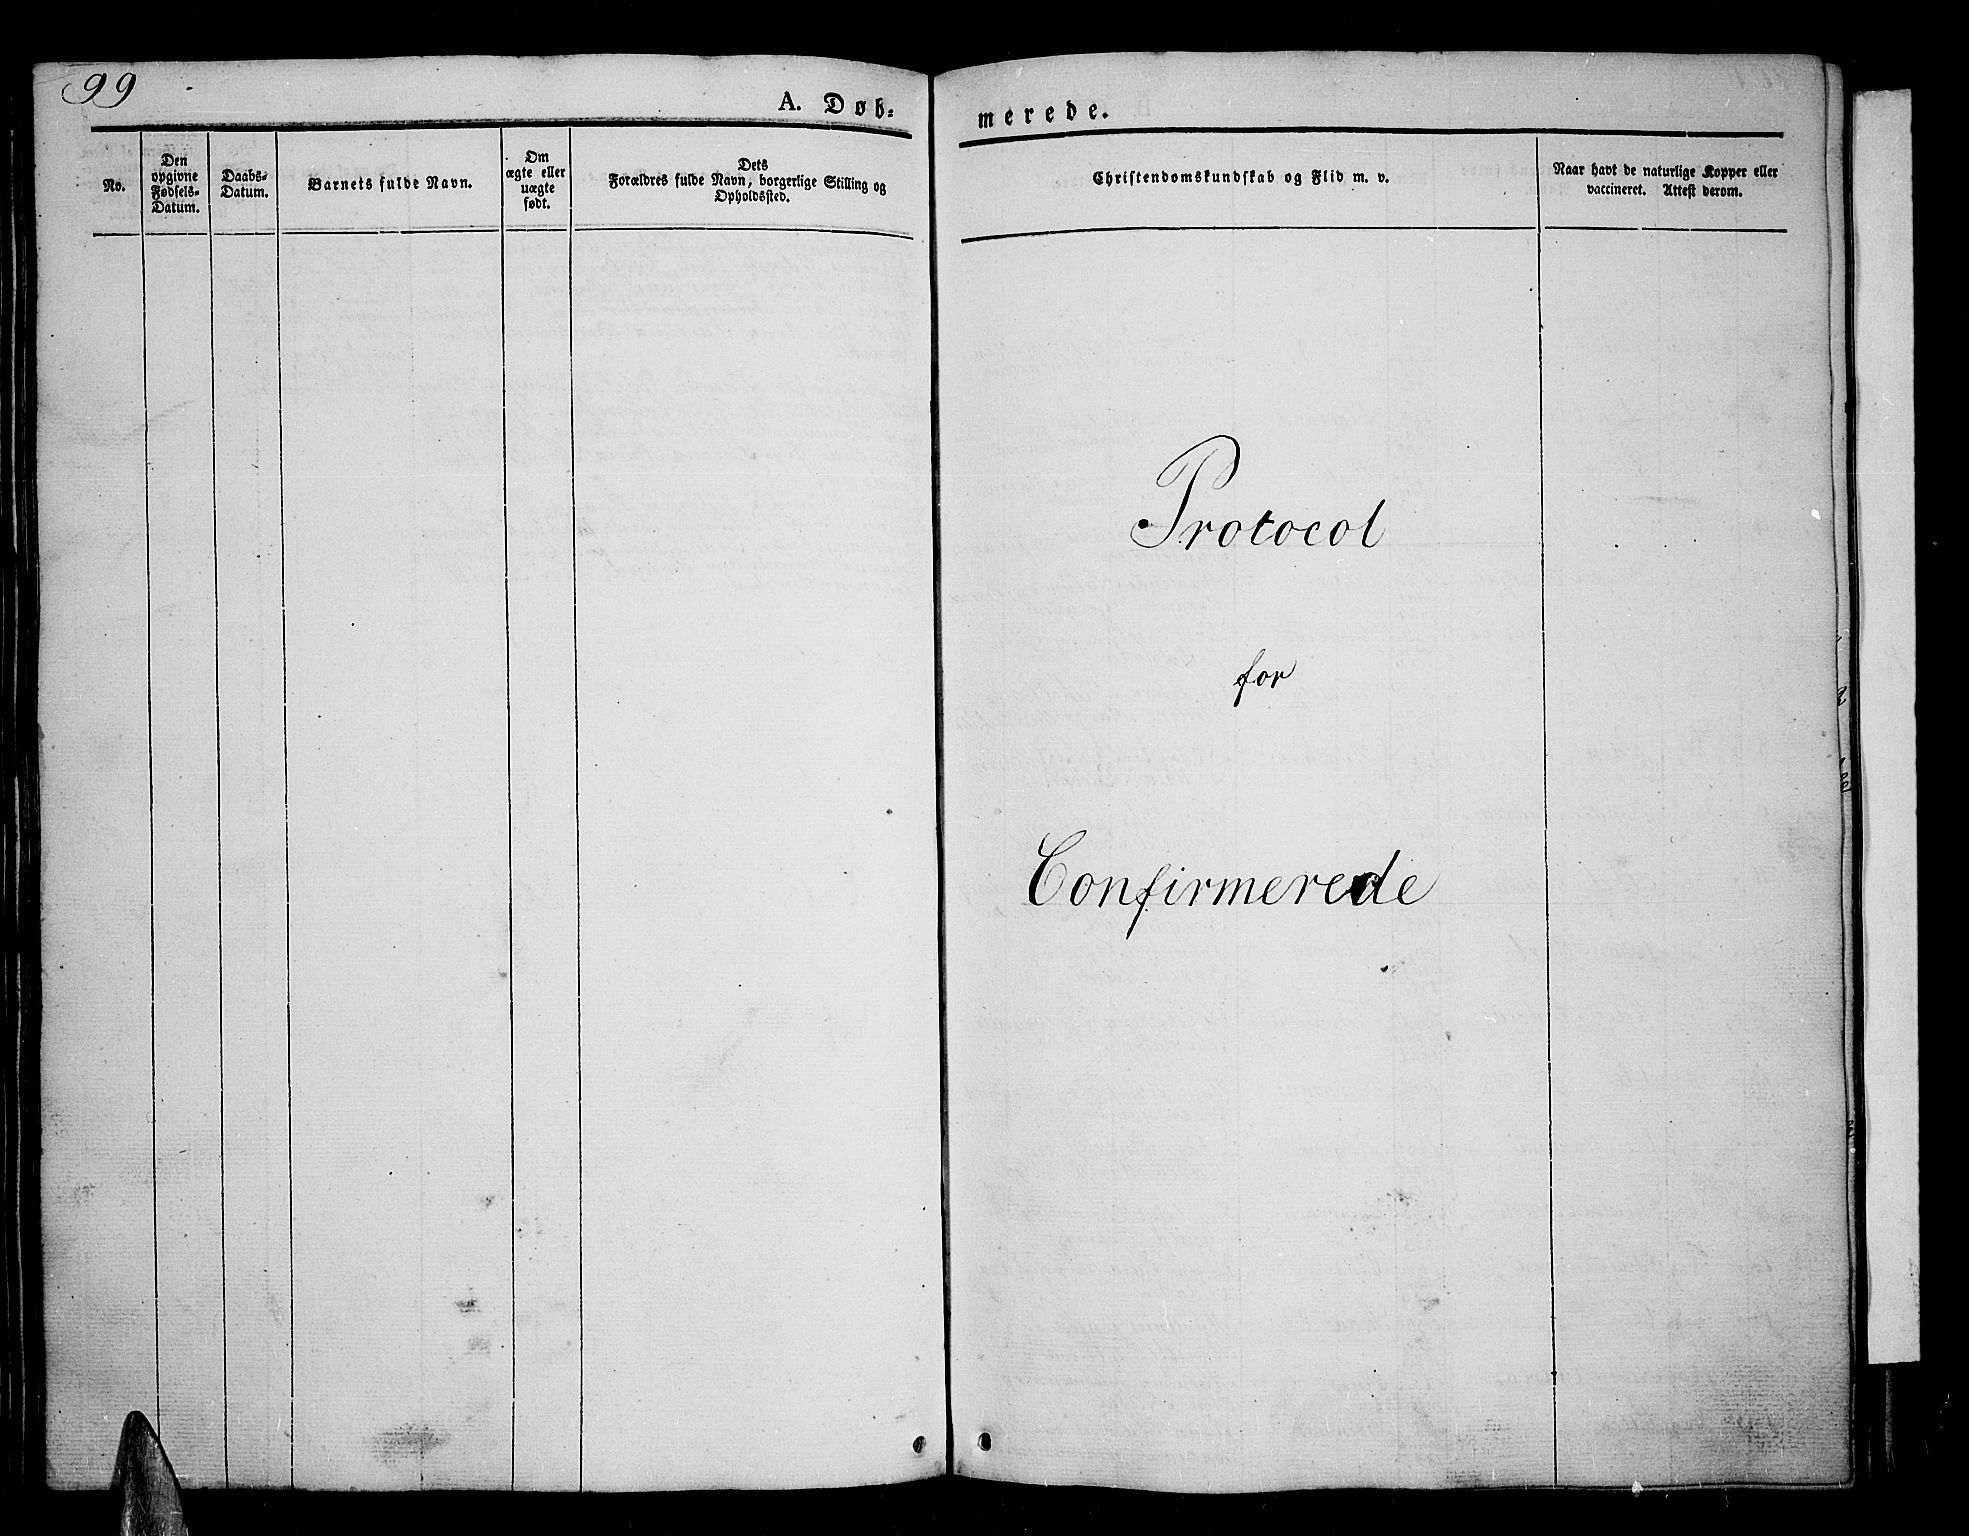 99
A. Døb=
No.
Den
opgivne
Fødsels-
Datum.
Daabs-
Datum.
Barnets fulde Navn.
Om
ægte eller
uægte
født.
Dets
Forældres fulde Navn, borgerlige Stilling og
Opholdssted.
merede.
Christendomskundskab og Flid m. v.
Naar havt de naturlige Kopper eller
vaccineret. Attest derom.
Protocol
for
Confirmerede